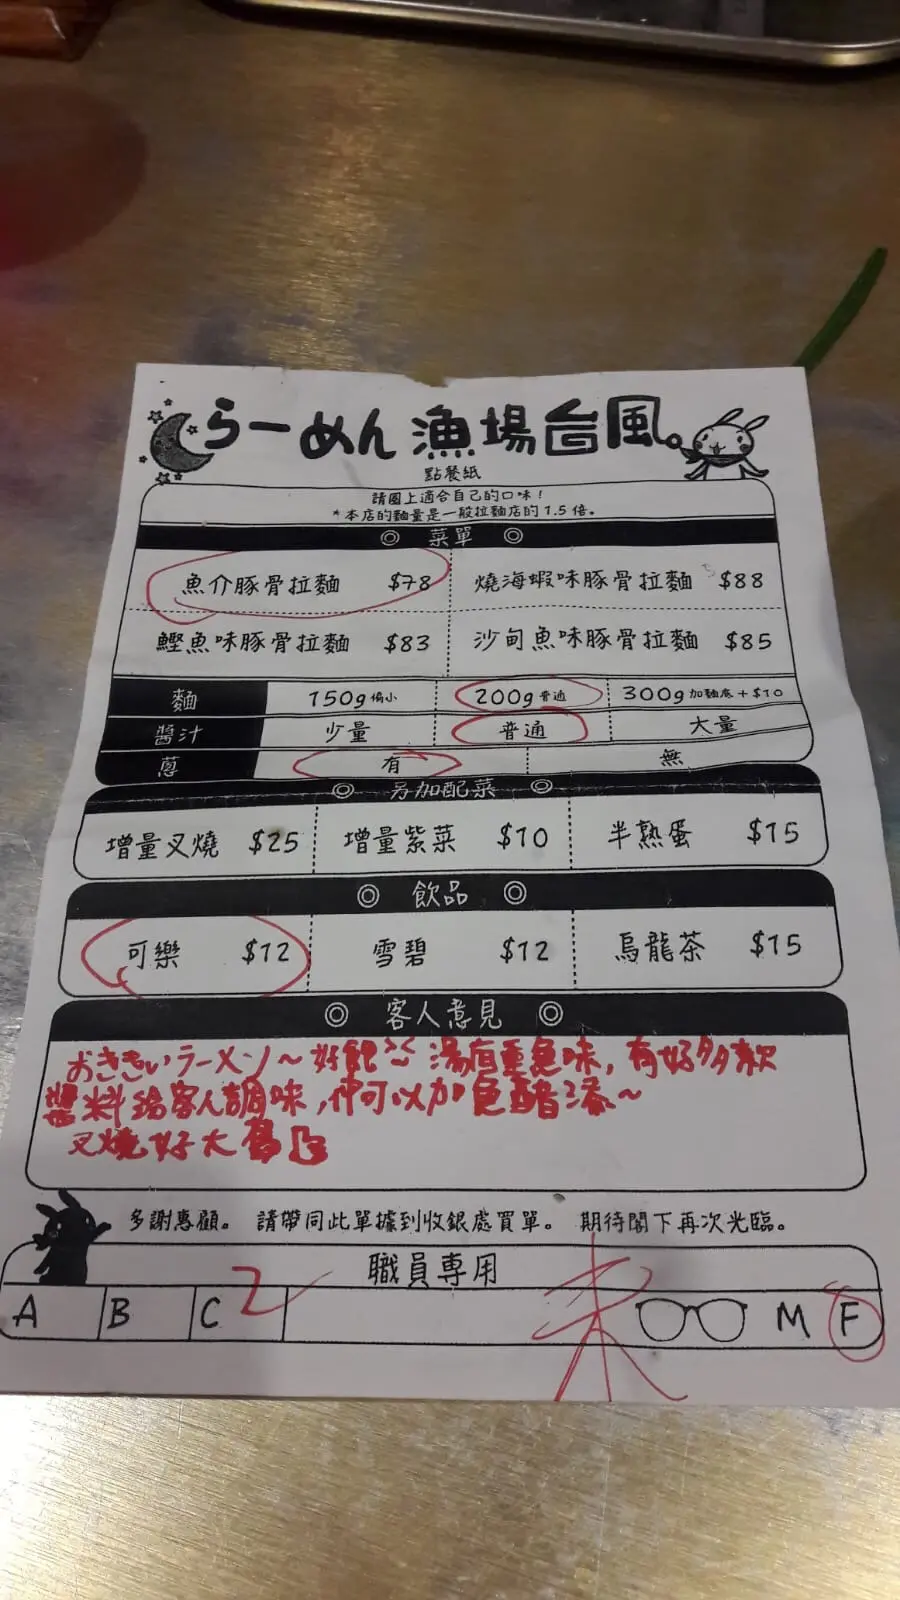 らーめん漁場台風。
點餐紙
請圈上適合自己的口味！
*本店的麵量是一般拉麵店的1.5倍。
◎ 菜單 ◎
魚介豚骨拉麵 $78 燒海蝦味豚骨拉麵 $88
鰹魚味豚骨拉麵 $83 沙甸魚味豚骨拉麵 $85
麵 150g偏小 200g普通 300g加麵底+$10
醬汁 少量 普通 大量
蔥 有 無
◎ 另加配菜 ◎
增量叉燒 $25 增量紫菜 $10 半熟蛋 $15
◎ 飲品 ◎
可樂 $12 雪碧 $12 烏龍茶 $15
◎ 客人意見 ◎
おききいラーメン～好飽 湯有重魚味，有好多款
醬料給客人調味，仲可以加魚醋添～
叉燒好大
多謝惠顧。 請帶同此單據到收銀處買單。 期待閣下再次光臨。
職員專用
A B C 2 未 M F